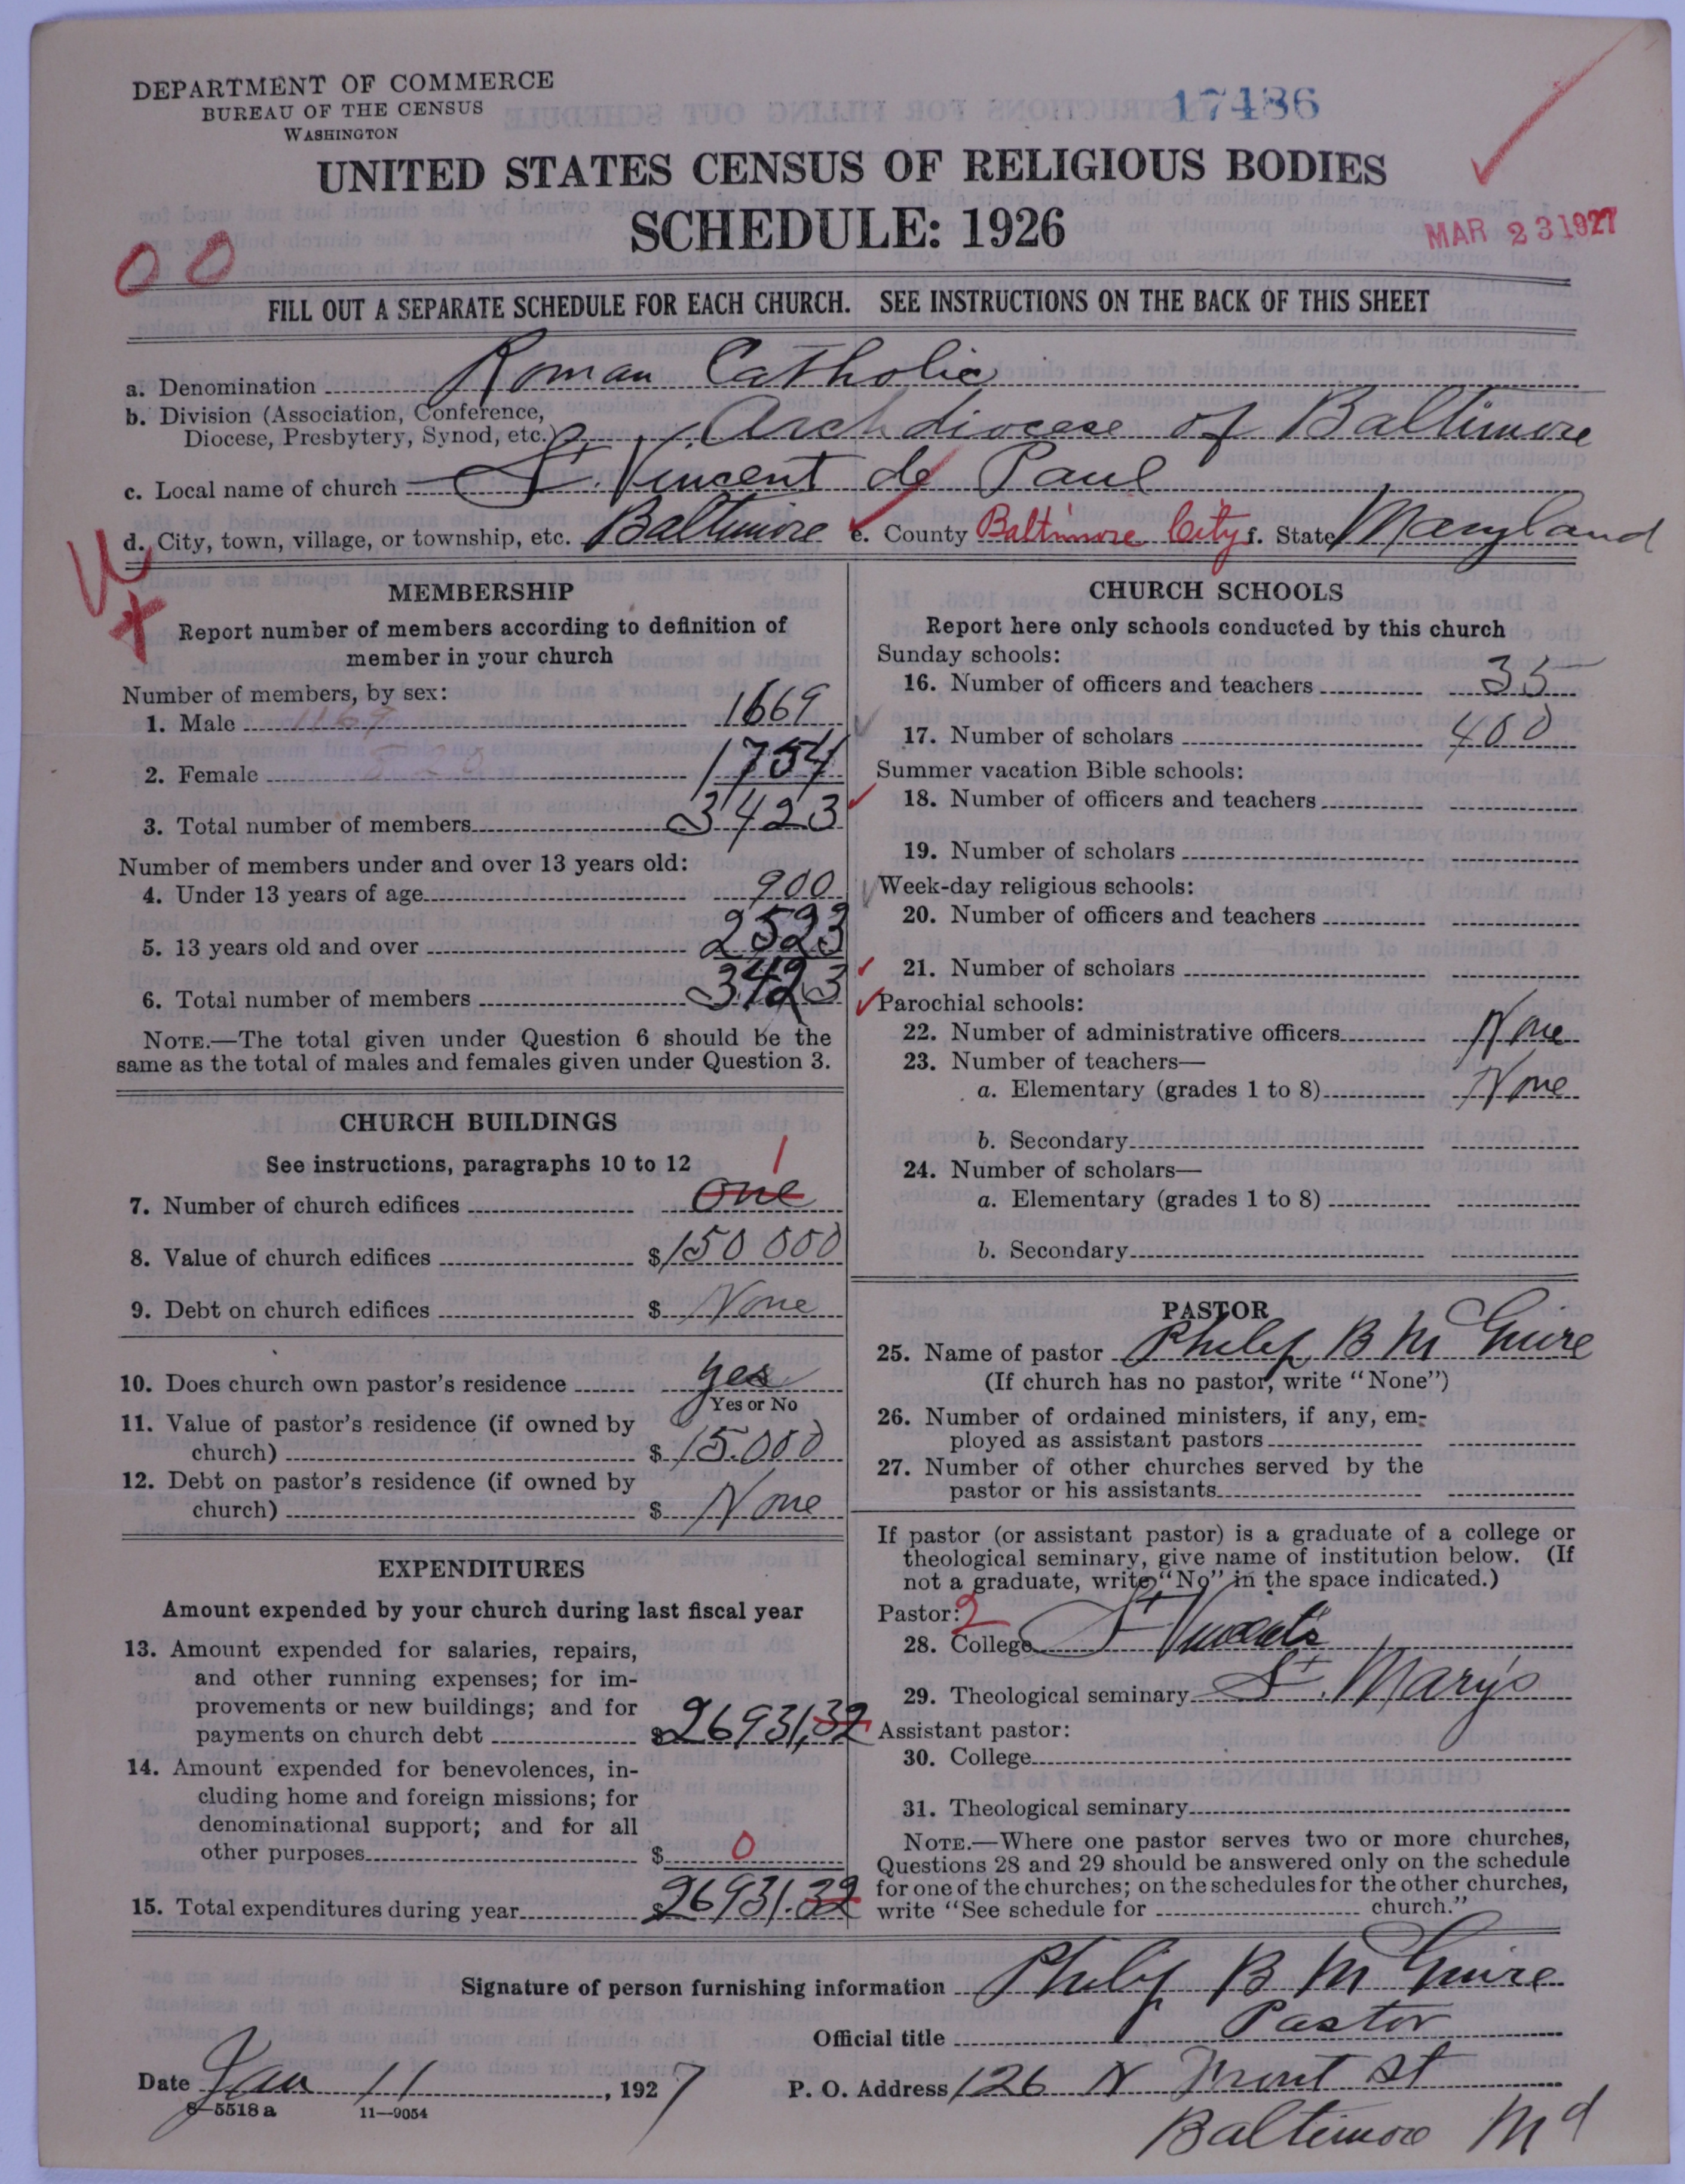 DEPARTMENT OF COMMERCE
BUREAU OF THE CENSUS
WASHINGTON
17486
UNITED STATES CENSUS OF RELIGIOUS BODIES
SCHEDULE: 1926
MAR 23 1927
00
FILL OUT A SEPARATE SCHEDULE FOR EACH CHURCH. SEE INSTRUCTIONS ON THE BACK OF THIS SHEET
a. Denomination Roman Catholic
b. Division (Association, Conference,
Diocese, Presbytery, Synod, etc.) Archdiocese of Baltimore
c. Local name of church St. Vincent de Paul
d. City, town, village, or township, etc. Baltimore e. County Baltimore City f. State Maryland
MEMBERSHIP
Report number of members according to definition of
member in your church
Number of members, by sex:
1. Male 1669
2. Female 1754
3. Total number of members 3423
Number of members under and over 13 years old:
4. Under 13 years of age 900
5. 13 years old and over 2523
6. Total number of members 3423
NOTE.—The total given under Question 6 should be the
same as the total of males and females given under Question 3.
CHURCH BUILDINGS
See instructions, paragraphs 10 to 12 1
7. Number of church edifices one
8. Value of church edifices $150 000
9. Debt on church edifices $ None
10. Does church own pastor's residence yes
Yes or No
11. Value of pastor's residence (if owned by
church) $15.000
12. Debt on pastor's residence (if owned by
church) $ None
EXPENDITURES
Amount expended by your church during last fiscal year
13. Amount expended for salaries, repairs,
and other running expenses; for im-
provements or new buildings; and for
payments on church debt $26931,32
14. Amount expended for benevolences, in-
cluding home and foreign missions; for
denominational support; and for all
other purposes $ 0
15. Total expenditures during year $26931.32
CHURCH SCHOOLS
Report here only schools conducted by this church
Sunday schools:
16. Number of officers and teachers 35
17. Number of scholars 400
Summer vacation Bible schools:
18. Number of officers and teachers
19. Number of scholars
Week-day religious schools:
20. Number of officers and teachers
21. Number of scholars
Parochial schools:
22. Number of administrative officers None
23. Number of teachers—
a. Elementary (grades 1 to 8) None
b. Secondary
24. Number of scholars—
a. Elementary (grades 1 to 8)
b. Secondary
PASTOR
25. Name of pastor Philip B McGuire
(If church has no pastor, write "None")
26. Number of ordained ministers, if any, em-
ployed as assistant pastors
27. Number of other churches served by the
pastor or his assistants
If pastor (or assistant pastor) is a graduate of a college or
theological seminary, give name of institution below. (If
not a graduate, write "No" in the space indicated.)
Pastor: 2
28. College St Vincent's
29. Theological seminary St. Mary's
Assistant pastor:
30. College
31. Theological seminary
NOTE.—Where one pastor serves two or more churches,
Questions 28 and 29 should be answered only on the schedule
for one of the churches; on the schedules for the other churches,
write "See schedule for church."
Signature of person furnishing information Philip B McGuire
Official title Pastor
Date Jan 11, 1927 P. O. Address 126 N Front St
8—5518 a 11—9054
Baltimore Md